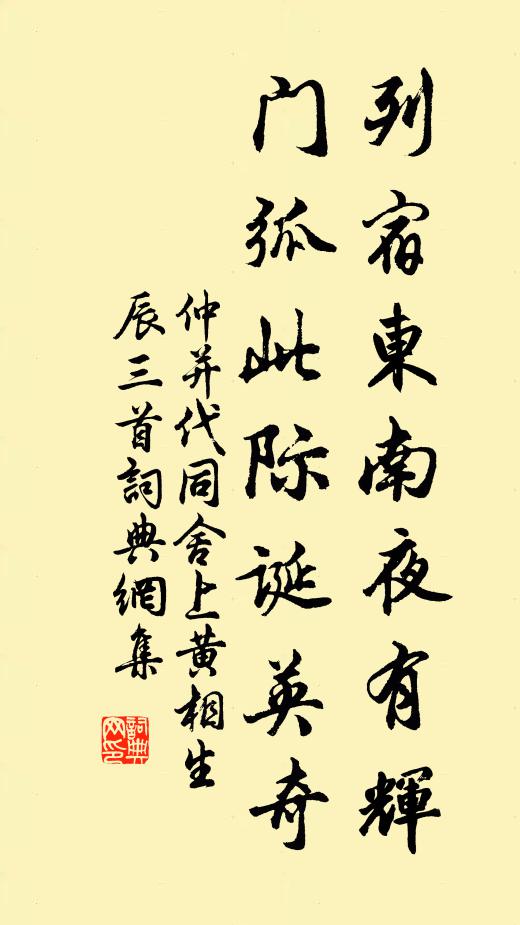 列宿東南夜有輝
门弧此际诞英奇
仲并代同舍上黄相生
辰三首詞典網集
詞典
网印